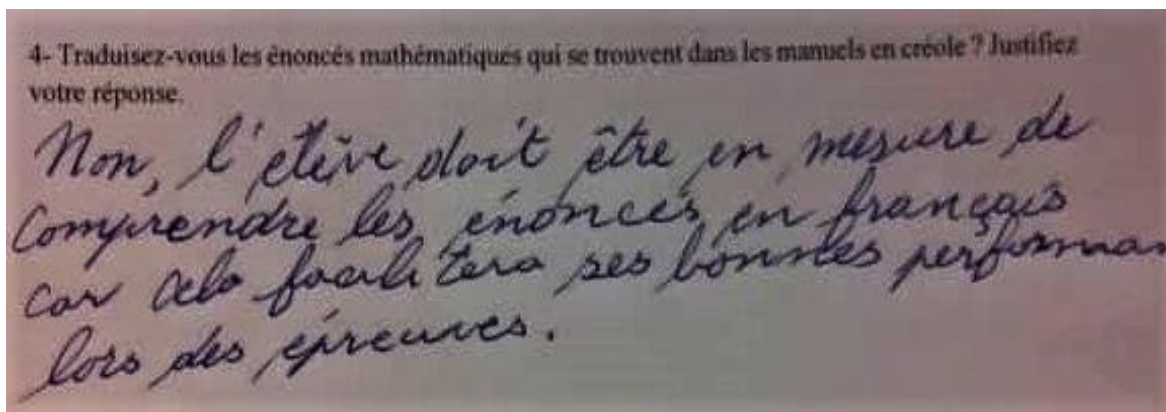 4- Traduisez-vous les énoncés mathématiques qui se trouvent dans les manuels en créole ? Justifiez
votre réponse.
Non, l'élève doit être en mesure de
comprendre les énoncés en français
car cela facilitera ses bonnes performan
lors des épreuves.